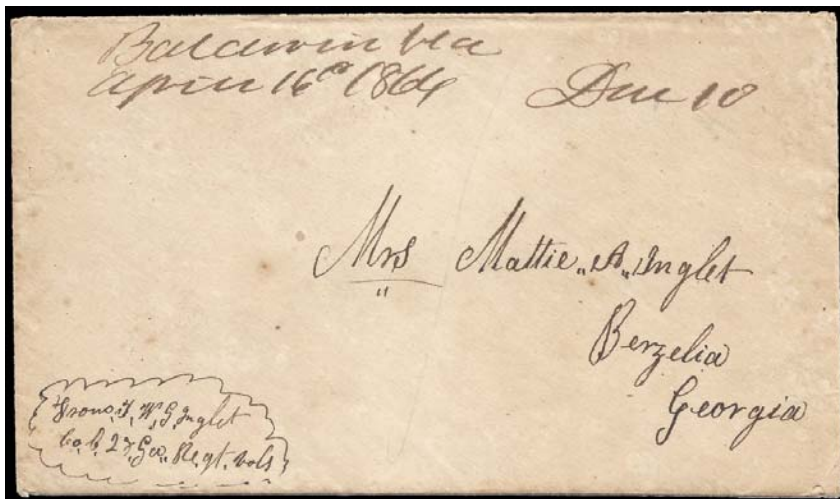 Baldwin Fla
April 16th 1864 Due 10
Mrs Mattie „A„ Inglet
Berzelia
Georgia
From, T, W, G, Inglet
Co, C, 27, Geo,, Regt. Vols